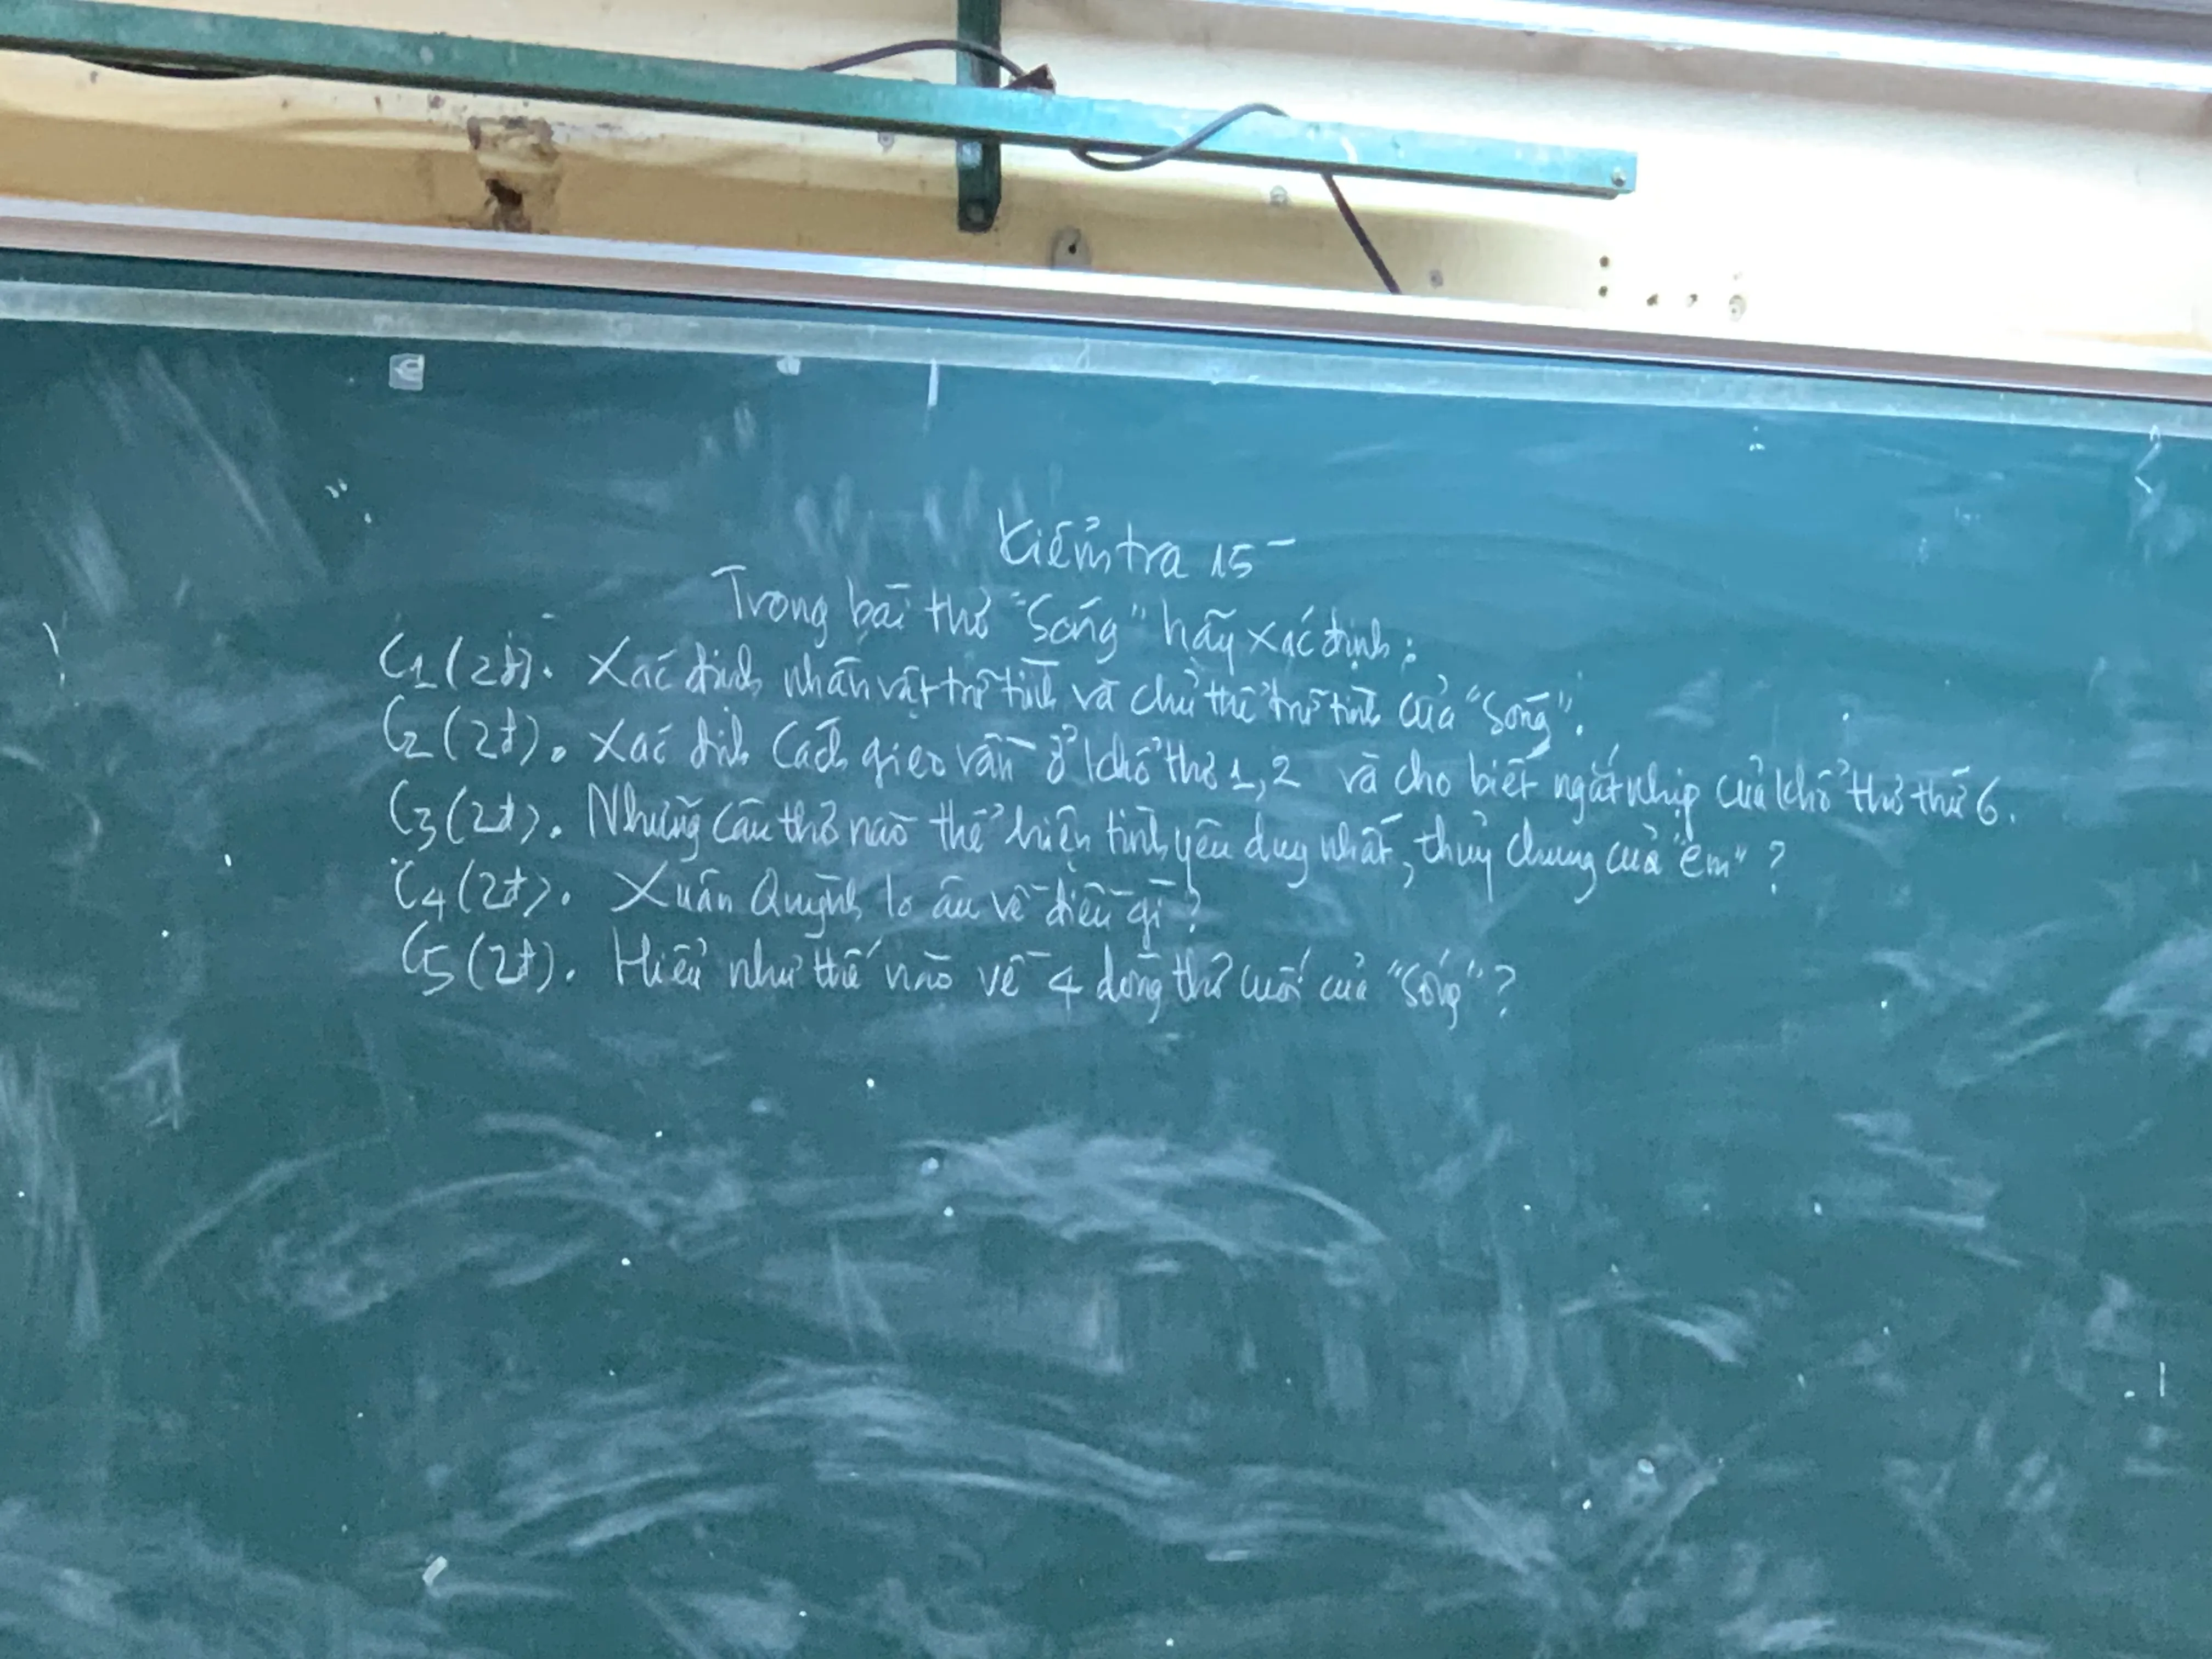 Kiểm tra 15'
Trong bài thơ "Sóng" hãy xác định:
C1 (2đ). Xác định nhân vật trữ tình và chủ thể trữ tình của "Sóng".
C2 (2đ). Xác định cách gieo vần ở khổ thơ 1, 2 và cho biết ngắt nhịp của khổ thơ thứ 6.
C3 (2đ). Những câu thơ nào thể hiện tình yêu duy nhất, thủy chung của "em"?
C4 (2đ). Xuân Quỳnh lo âu về điều gì?
C5 (2đ). Hiểu như thế nào về 4 dòng thơ cuối của "Sóng"?